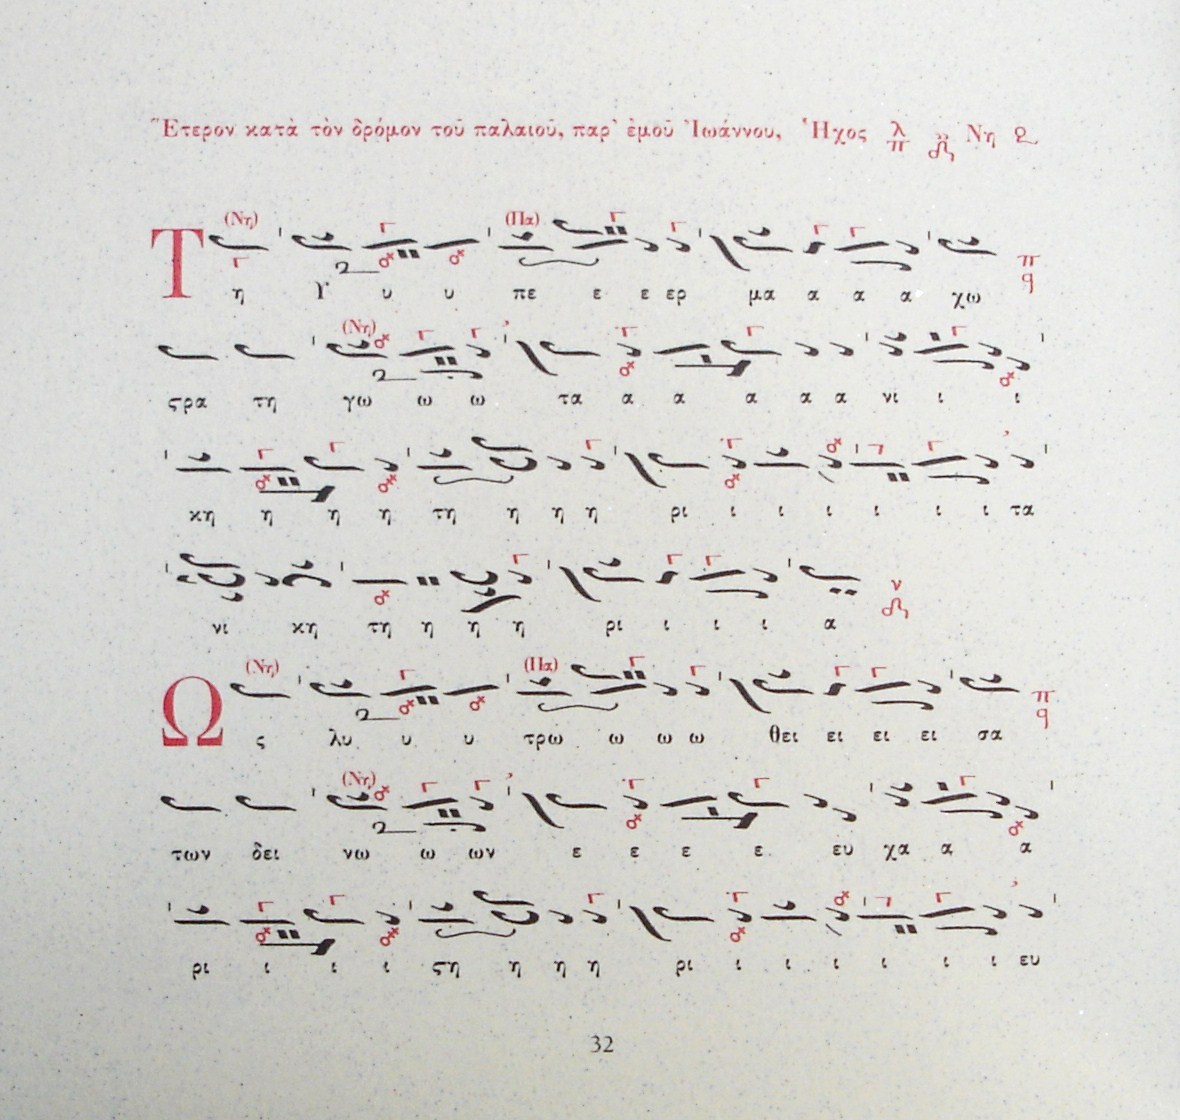 Ἕτερον κατὰ τὸν δρόμον τοῦ παλαιοῦ, παρ' ἐμοῦ Ἰωάννου, Ἦχος λ π Νη
(Νη) (Πα)
Τ η Υ υ υ πε ε ε ερ μα α α α χω π q
(Νη)
ϛρα τη γω ω ω τα α α α α α νι ι ι
κη η η η τη η η η ρι ι ι ι ι ι ι τα
νι κη τη η η η ρι ι ι ι α ν
(Νη) (Πα)
Ω ς λυ υ υ τρω ω ω ω θει ει ει ει σα π q
(Νη)
των δει νω ω ων ε ε ε ε ευ χα α α
ρι ι ι ι ϛη η η η ρι ι ι ι ι ι ι ευ
32